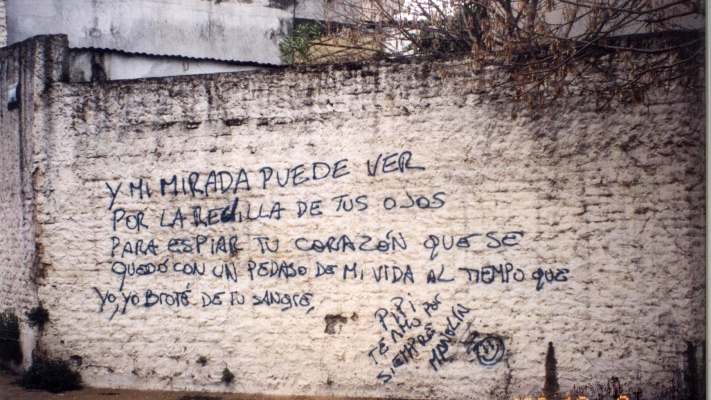 Y MI MIRADA PUEDE VER
POR LA REdILLA DE TUS OJOS
PARA ESPIAR TU CORAZÓN QUE SE
QUEDÓ CON UN PEDASO DE MI VIDA AL TIEMPO QUE
YO, YO BROTÉ DE TU SANGRE,
PIPI
TE AMO POR
SIEMPRE